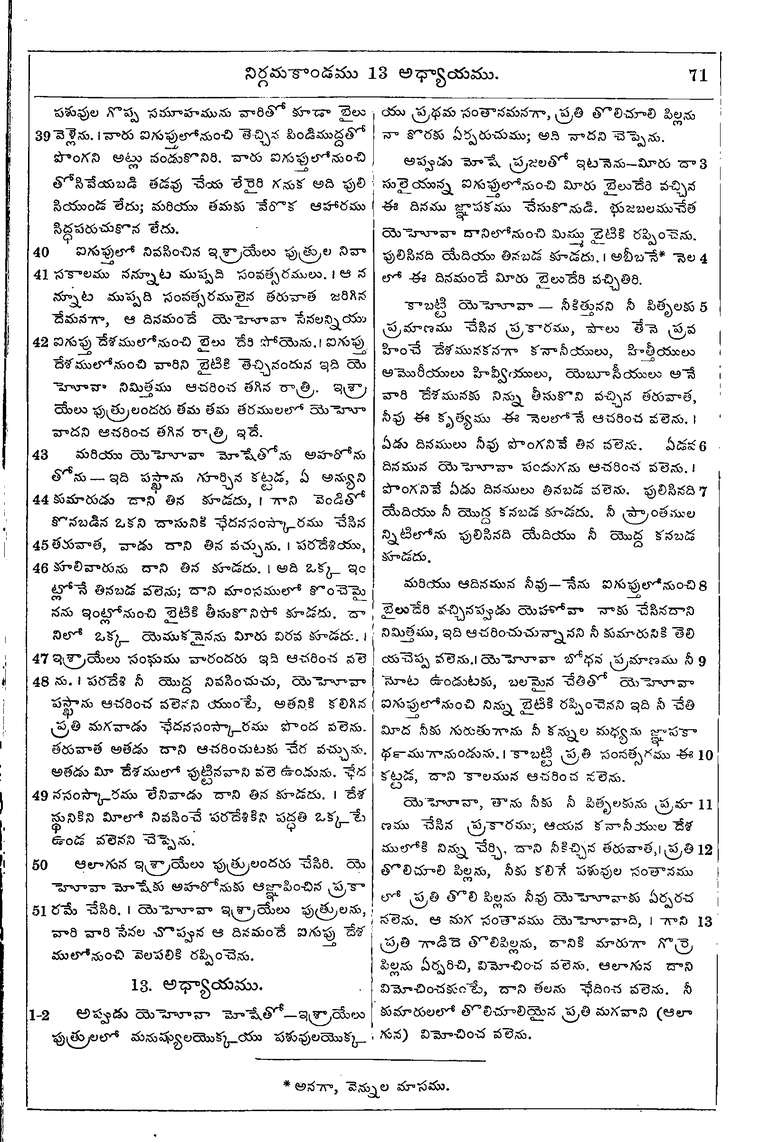 నిర్గమకాండము 13 అధ్యాయము.
71
పశువుల గొప్ప సమూహమును వారితో కూడా బైలు
39 వెళ్లెను. । వారు ఐగుప్తులోనుంచి తెచ్చిన పిండిముద్దతో
పొంగని అట్లు వండుకొనిరి. వారు ఐగుప్తులోనుంచి
తోసివేయబడి తడవు చేయ లేరైరి గనుక అది పులి
సియుండ లేదు; మరియు తమకు వేరొక ఆహారము
సిద్ధపరుచుకొన లేదు.
40 ఐగుప్తులో నివసించిన ఇశ్రాయేలు పుత్రుల నివా
41 సకాలము నన్నూట ముప్పది సంవత్సరములు. । ఆ న
న్నూట ముప్పది సంవత్సరములైన తరువాత జరిగిన
దేమనగా, ఆ దినమందే యెహోవా సేనలన్నియు
42 ఐగుప్తు దేశములోనుంచి బైలు దేరి పోయెను. । ఐగుప్తు
దేశములోనుంచి వారిని బైటికి తెచ్చినందున ఇది యె
హోవా నిమిత్తము ఆచరించ తగిన రాత్రి. ఇశ్రా
యేలు పుత్రులందరు తమ తమ తరములలో యెహో
వాదని ఆచరించ తగిన రాత్రి ఇదే.
43 మరియు యెహోవా మోషేతోను అహరోను
తోను — ఇది పస్ఖాను గూర్చిన కట్టడ, ఏ అన్యుని
44 కుమారుడు దాని తిన కూడదు, । గాని వెండితో
కొనబడిన ఒకని దాసునికి ఛేదనసంస్కారము చేసిన
45 తరువాత, వాడు దాని తిన వచ్చును. । పరదేశియు,
46 కూలివారును దాని తిన కూడదు. । అది ఒక్క ఇం
ట్లోనే తినబడ వలెను; దాని మాంసములో కొంచెమై
నను ఇంట్లోనుంచి బైటికి తీసుకొనిపో కూడదు. దా
నిలో ఒక్క యెముకనైనను మీరు విరవ కూడదు. ।
47 ఇశ్రాయేలు సంఘము వారందరు ఇది ఆచరించ వలె
48 ను. । పరదేశి నీ యొద్ద నివసించుచు, యెహోవా
పస్ఖాను ఆచరించ వలెనని యుంటే, అతనికి కలిగిన
ప్రతి మగవాడు ఛేదనసంస్కారము పొంద వలెను.
తరువాత అతడు దాని ఆచరించుటకు చేర వచ్చును.
అతడు మీ దేశములో పుట్టినవాని వలె ఉండును. ఛేద
49 నసంస్కారము లేనివాడు దాని తిన కూడదు. । దేశ
స్థునికిని మీలో నివసించే పరదేశికిని పద్ధతి ఒక్కటే
ఉండ వలెనని చెప్పెను.
50 ఆలాగున ఇశ్రాయేలు పుత్రులందరు చేసిరి. యె
హోవా మోషేకు అహరోనుకు ఆజ్ఞాపించిన ప్రకా
51 రమే చేసిరి. । యెహోవా ఇశ్రాయేలు పుత్రులను,
వారి వారి సేనల చొప్పున ఆ దినమందే ఐగుప్తు దేశ
ములోనుంచి వెలపలికి రప్పించెను.
13. అధ్యాయము.
1-2 అప్పుడు యెహోవా మోషేతో—ఇశ్రాయేలు
పుత్రులలో మనుష్యులయొక్కయు పశువులయొక్క
యు ప్రథమ సంతానమనగా, ప్రతి తొలిచూలి పిల్లను
నా కొరకు ఏర్పరుచుము; అది నాదని చెప్పెను.
అప్పుడు మోషే ప్రజలతో ఇటనెను—మీరు దా 3
సులైయున్న ఐగుప్తులోనుంచి మీరు బైలుదేరి వచ్చిన
ఈ దినము జ్ఞాపకము చేసుకొనుడి. భుజబలముచేత
యెహోవా దానిలోనుంచి మిమ్ము బైటికి రప్పించెను.
పులిసినది యేదియు తినబడ కూడదు. । అబీబనే* నెల 4
లో ఈ దినమందే మీరు బైలుదేరి వచ్చితిరి.
కాబట్టి యెహోవా — నీకిత్తునని నీ పితృలకు 5
ప్రమాణము చేసిన ప్రకారము, పాలు తేనె ప్రవ
హించే దేశమునకనగా కనానీయులు, హిత్తీయులు
అమోరీయులు హివ్వీయులు, యెబూసీయులు అనే
వారి దేశమునకు నిన్ను తీసుకొని వచ్చిన తరువాత,
నీవు ఈ కృత్యము ఈ నెలలోనే ఆచరించ వలెను. ।
ఏడు దినములు నీవు పొంగనివే తిన వలెను. ఏడవ 6
దినమున యెహోవా పండుగను ఆచరించ వలెను. ।
పొంగనివే ఏడు దినములు తినబడ వలెను. పులిసినది 7
యేదియు నీ యొద్ద కనబడ కూడదు. నీ ప్రాంతముల
న్నిటిలోను పులిసినది యేదియు నీ యొద్ద కనబడ
కూడదు.
మరియు ఆదినమున నీవు—నేను ఐగుప్తులోనుంచి 8
బైలుదేరి వచ్చినప్పుడు యెహోవా నాకు చేసినదాని
నిమిత్తము, ఇది ఆచరించుచున్నానని నీ కుమారునికి తెలి
యచెప్ప వలెను. । యెహోవా బోధన ప్రమాణము నీ 9
నోట ఉండుటకు, బలమైన చేతితో యెహోవా
ఐగుప్తులోనుంచి నిన్ను బైటికి రప్పించెనని ఇది నీ చేతి
మీద నీకు గురుతుగాను నీ కన్నుల మధ్యను జ్ఞాపకా
ర్థముగానుండును. । కాబట్టి ప్రతి సంవత్సరము ఈ 10
కట్టడ, దాని కాలమున ఆచరించ వలెను.
యెహోవా, తాను నీకు నీ పితృలకును ప్రమా 11
ణము చేసిన ప్రకారము, ఆయన కనానీయుల దేశ
ములోకి నిన్ను చేర్చి, దాని నీకిచ్చిన తరువాత, । ప్రతి 12
తొలిచూలి పిల్లను, నీకు కలిగే పశువుల సంతానము
లో ప్రతి తొలి పిల్లను నీవు యెహోవాకు ఏర్పరచ
వలెను. ఆ మగ సంతానము యెహోవాది, । గాని 13
ప్రతి గాడిదె తొలిపిల్లను, దానికి మారుగా గొర్రె
పిల్లను ఏర్పరిచి, విమోచించ వలెను. ఆలాగున దాని
విమోచించకుంటే, దాని తలను ఛేదించ వలెను. నీ
కుమారులలో తొలిచూలియైన ప్రతి మగవాని (ఆలా
గున) విమోచించ వలెను.
* అనగా, వెన్నుల మాసము.